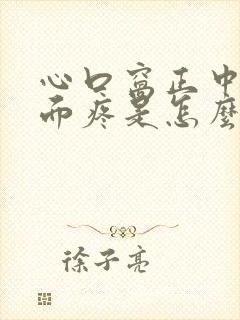 心口窝正中
而疼是怎麼
徐子亮